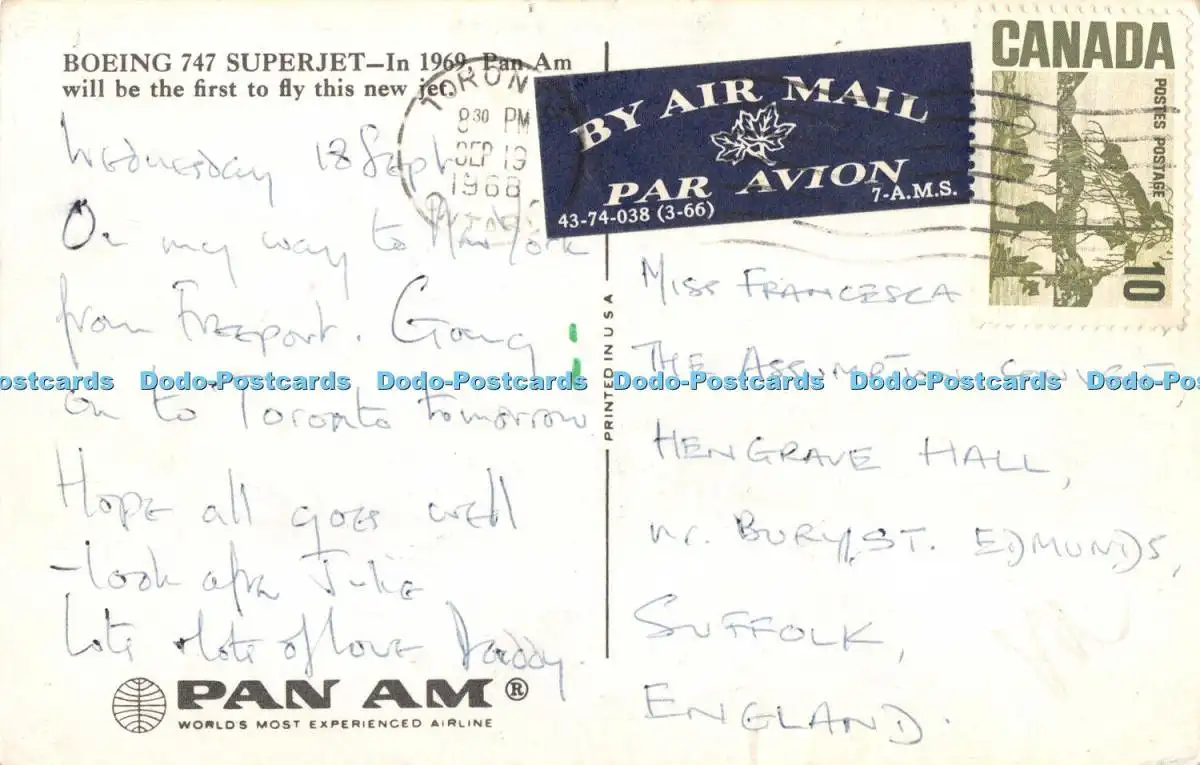 BOEING 747 SUPERJET—In 1969, Pan Am
will be the first to fly this new jet.
Wednesday 18 Sept
On my way to New York
from Freeport. Going
on to Toronto tomorrow
Hope all goes well
- look after Julie
Lots & lots of love Daddy.
PAN AM®
WORLD'S MOST EXPERIENCED AIRLINE
PRINTED IN U S A
TORON
8 30 PM
SEP 19
1968
BY AIR MAIL
PAR AVION
43-74-038 (3-66)
7-A.M.S.
CANADA
POSTES POSTAGE
10
MISS FRANCESCA
THE ASSUMPTION CONVENT,
HENGRAVE HALL,
nr. BURY ST. EDMUNDS,
SUFFOLK,
ENGLAND.
ostcards Dodo-Postcards Dodo-Postcards Dodo-Postcards Dodo-Postcards Dod